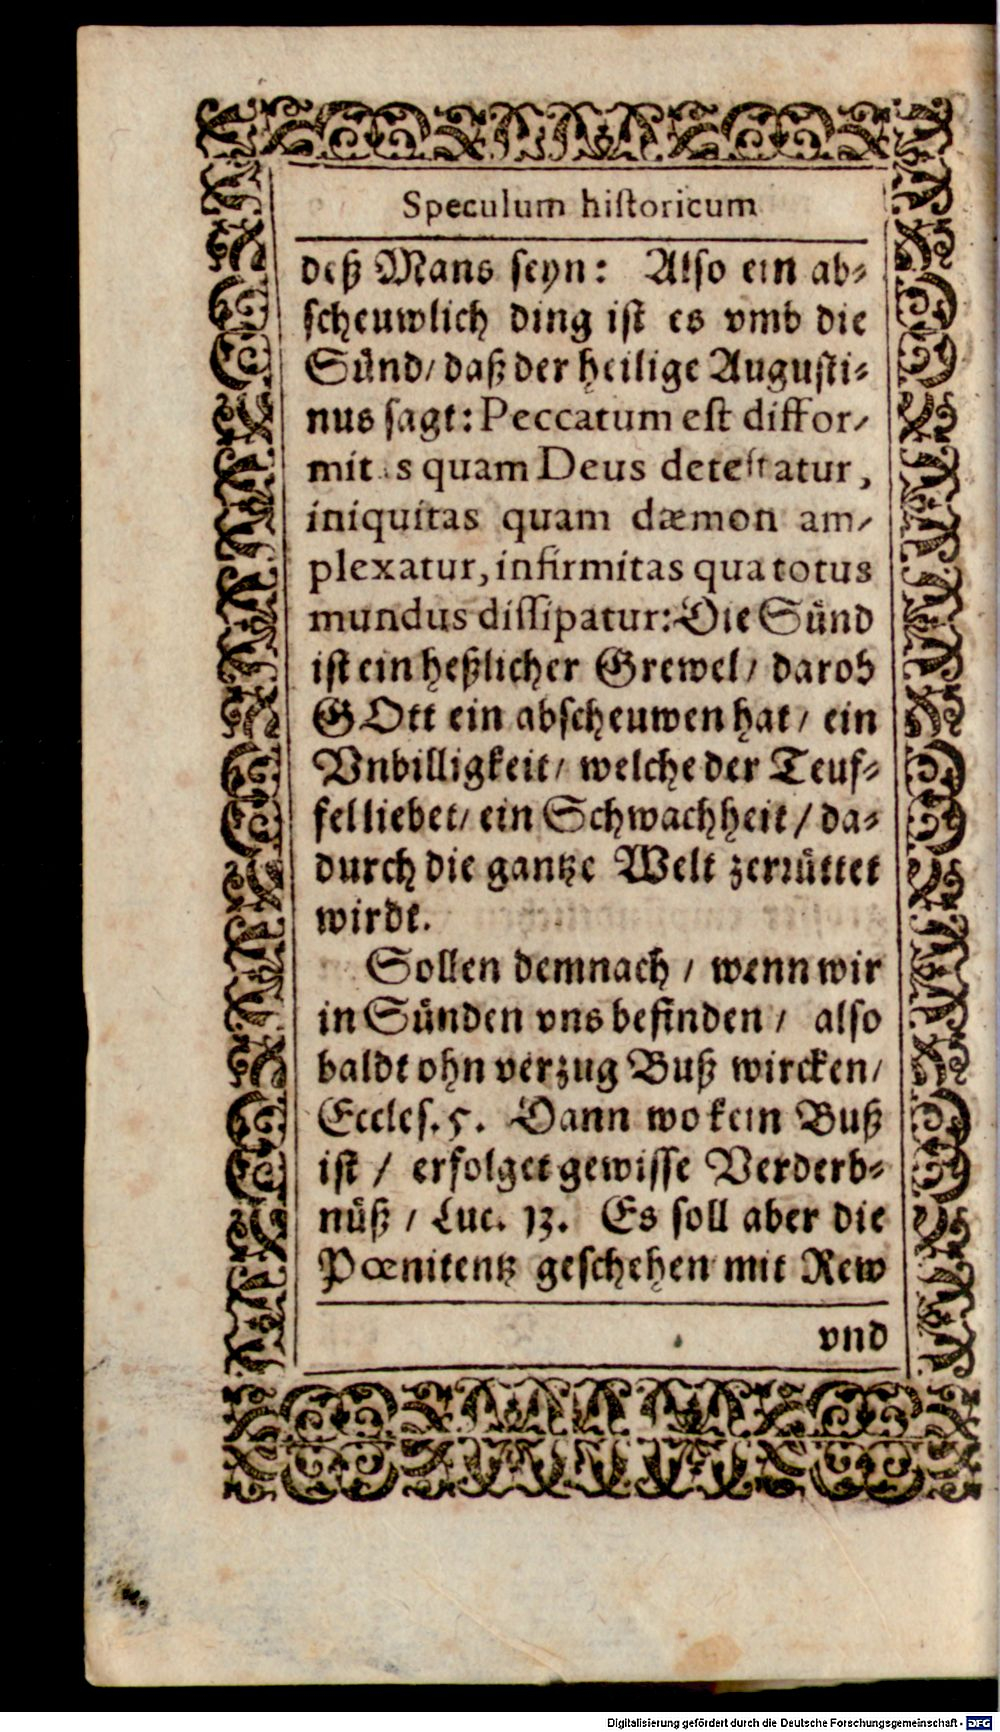 Speculum hiſtoricum
deß Mans ſeyn: Alſo ein ab⸗
ſcheuwlich ding iſt es vmb die
Sünd/ daß der heilige Auguſti⸗
nus ſagt: Peccatum eſt diffor-
mit s quam Deus deteſtatur,
iniquitas quam dæmon am-
plexatur, infirmitas qua totus
mundus diſſipatur: Die Sünd
iſt ein heßlicher Grewel/ darob
GOtt ein abſcheuwen hat/ ein
Vnbilligkeit/ welche der Teuf⸗
fel liebet/ ein Schwachheit/ da⸗
durch die gantze Welt zerrüttet
wirdt.
Sollen demnach/ wenn wir
in Sünden vns befinden/ alſo
baldt ohn verzug Buß wircken/
Eccleſ. 5. Dann wo kein Buß
iſt/ erfolget gewiſſe Verderb⸗
nüß/ Luc. 13. Es ſoll aber die
Pœnitentz geſchehen mit Rew
vnd
Digitalisierung gefördert durch die Deutsche Forschungsgemeinschaft - DFG